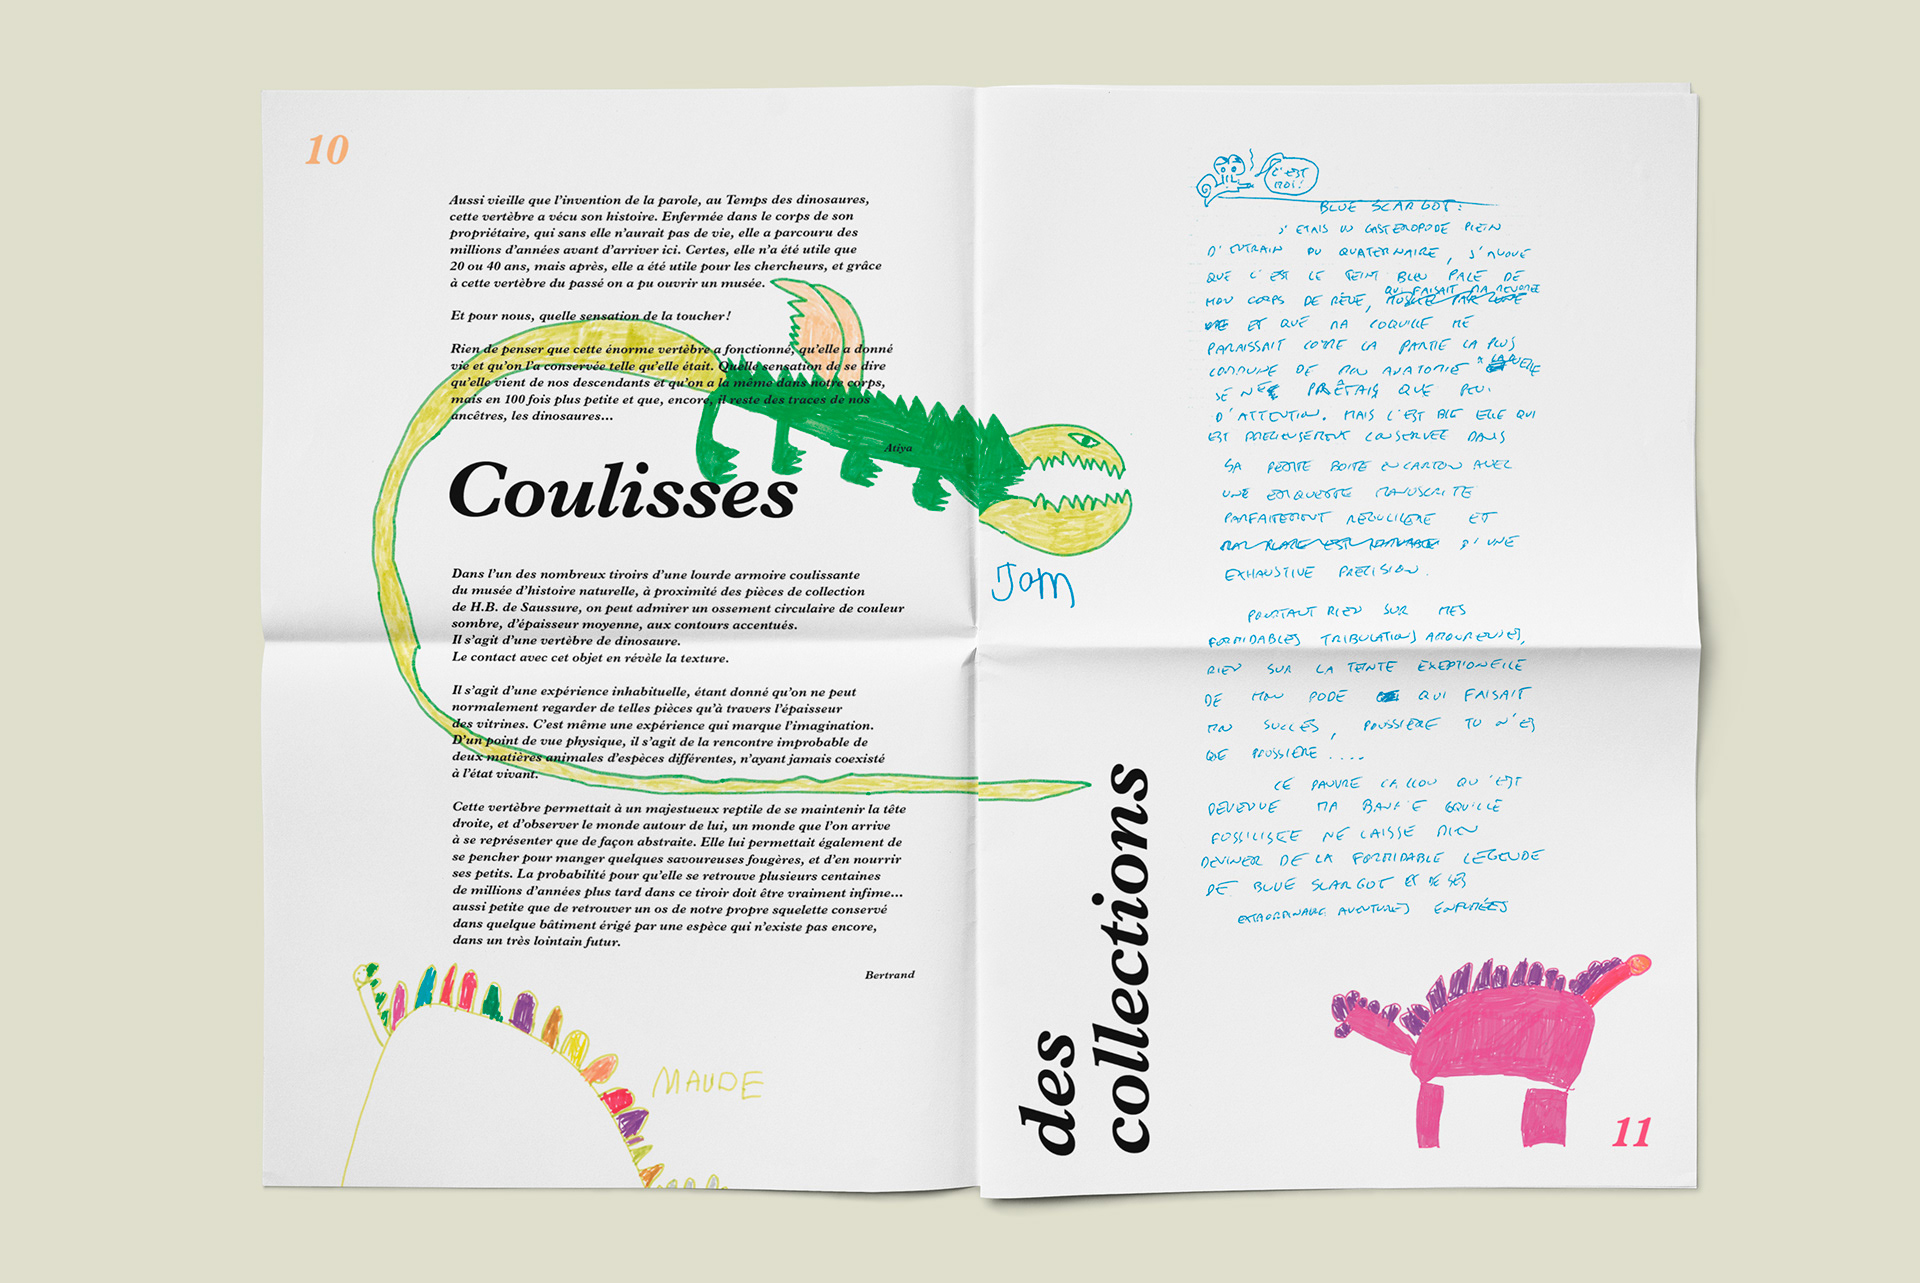 10
Aussi vieille que l'invention de la parole, au Temps des dinosaures,
cette vertèbre a vécu son histoire. Enfermée dans le corps de son
propriétaire, qui sans elle n'aurait pas de vie, elle a parcouru des
millions d'années avant d'arriver ici. Certes, elle n'a été utile que
20 ou 40 ans, mais après, elle a été utile pour les chercheurs, et grâce
à cette vertèbre du passé on a pu ouvrir un musée.
Et pour nous, quelle sensation de la toucher !
Rien de penser que cette énorme vertèbre a fonctionné, qu'elle a donné
vie et qu'on l'a conservée telle qu'elle était. Quelle sensation de se dire
qu'elle vient de nos descendants et qu'on a la même dans notre corps,
mais en 100 fois plus petite et que, encore, il reste des traces de nos
ancêtres, les dinosaures...
Atiya
Coulisses
Dans l'un des nombreux tiroirs d'une lourde armoire coulissante
du musée d'histoire naturelle, à proximité des pièces de collection
de H.B. de Saussure, on peut admirer un ossement circulaire de couleur
sombre, d'épaisseur moyenne, aux contours accentués.
Il s'agit d'une vertèbre de dinosaure.
Le contact avec cet objet en révèle la texture.
Il s'agit d'une expérience inhabituelle, étant donné qu'on ne peut
normalement regarder de telles pièces qu'à travers l'épaisseur
des vitrines. C'est même une expérience qui marque l'imagination.
D'un point de vue physique, il s'agit de la rencontre improbable de
deux matières animales d'espèces différentes, n'ayant jamais coexisté
à l'état vivant.
Cette vertèbre permettait à un majestueux reptile de se maintenir la tête
droite, et d'observer le monde autour de lui, un monde que l'on arrive
à se représenter que de façon abstraite. Elle lui permettait également de
se pencher pour manger quelques savoureuses fougères, et d'en nourrir
ses petits. La probabilité pour qu'elle se retrouve plusieurs centaines
de millions d'années plus tard dans ce tiroir doit être vraiment infime...
aussi petite que de retrouver un os de notre propre squelette conservé
dans quelque bâtiment érigé par une espèce qui n'existe pas encore,
dans un très lointain futur.
Bertrand
MAUDE
Jom
des
collections
C'EST
MOI!
BLUE SCARGOT:
J'ETAIS UN GASTEROPODE PLEIN
D'ENTRAIN DU QUATERNAIRE, J'AVOUE
QUE C'EST LE TEINT BLEU PALE DE
MON CORPS DE RÊVE, QUI FAISAIT MA
ET QUE MA COQUILLE ME
PARAISSAIT COMME LA PARTIE LA PLUS
COMMUNE DE MON ANATOMIE
JE N' PRÊTAIS QUE PEU
D'ATTENTION. MAIS C'EST ELLE QUI
EST PRECIEUSEMENT CONSERVEE DANS
SA PETITE BOITE EN CARTON AVEC
UNE ETIQUETTE MANUSCRITE
PARFAITEMENT REGULIERE ET
D'UNE
EXHAUSTIVE PRECISION.
POURTANT RIEN SUR MES
FORMIDABLES TRIBULATIONS AMOUREUSES,
RIEN SUR LA TEINTE EXEPTIONELLE
DE MON PODE QUI FAISAIT
MON SUCCES, POUSSIERE TU N'ES
QUE POUSSIERE....
CE PAUVRE CAILLOU QU'EST
DEVENUE MA COQUILLE
FOSSILISEE NE LAISSE RIEN
DEVINER DE LA FORMIDABLE LEGENDE
DE BLUE SCARGOT ET DE SES
EXTRAORDINAIRE AVENTURES ENFUMÉES
11